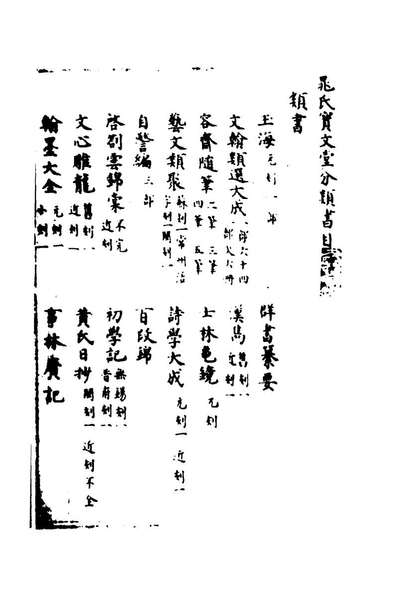 晁氏寶文堂分類書目
類書
玉海 元刻一部 群書纂要
文翰類選大成 一部六十四 漢雋 舊刻一 近刻一
容齋隨筆 二筆 三筆 四筆 五筆 士林龜鏡 元刻
藝文類聚 蘇刻一 常州活字刻一 閩刻一 詩學大成 元刻一 近刻一
自警編 三部 百段錦
啓劄雲錦裳 不完 近刻 初學記 無錫刻一 晉府刻一
文心雕龍 舊刻一 近刻一 黃氏日抄 閩刻一 近刻不全
翰墨大全 元刻一 小刻一 事林廣記